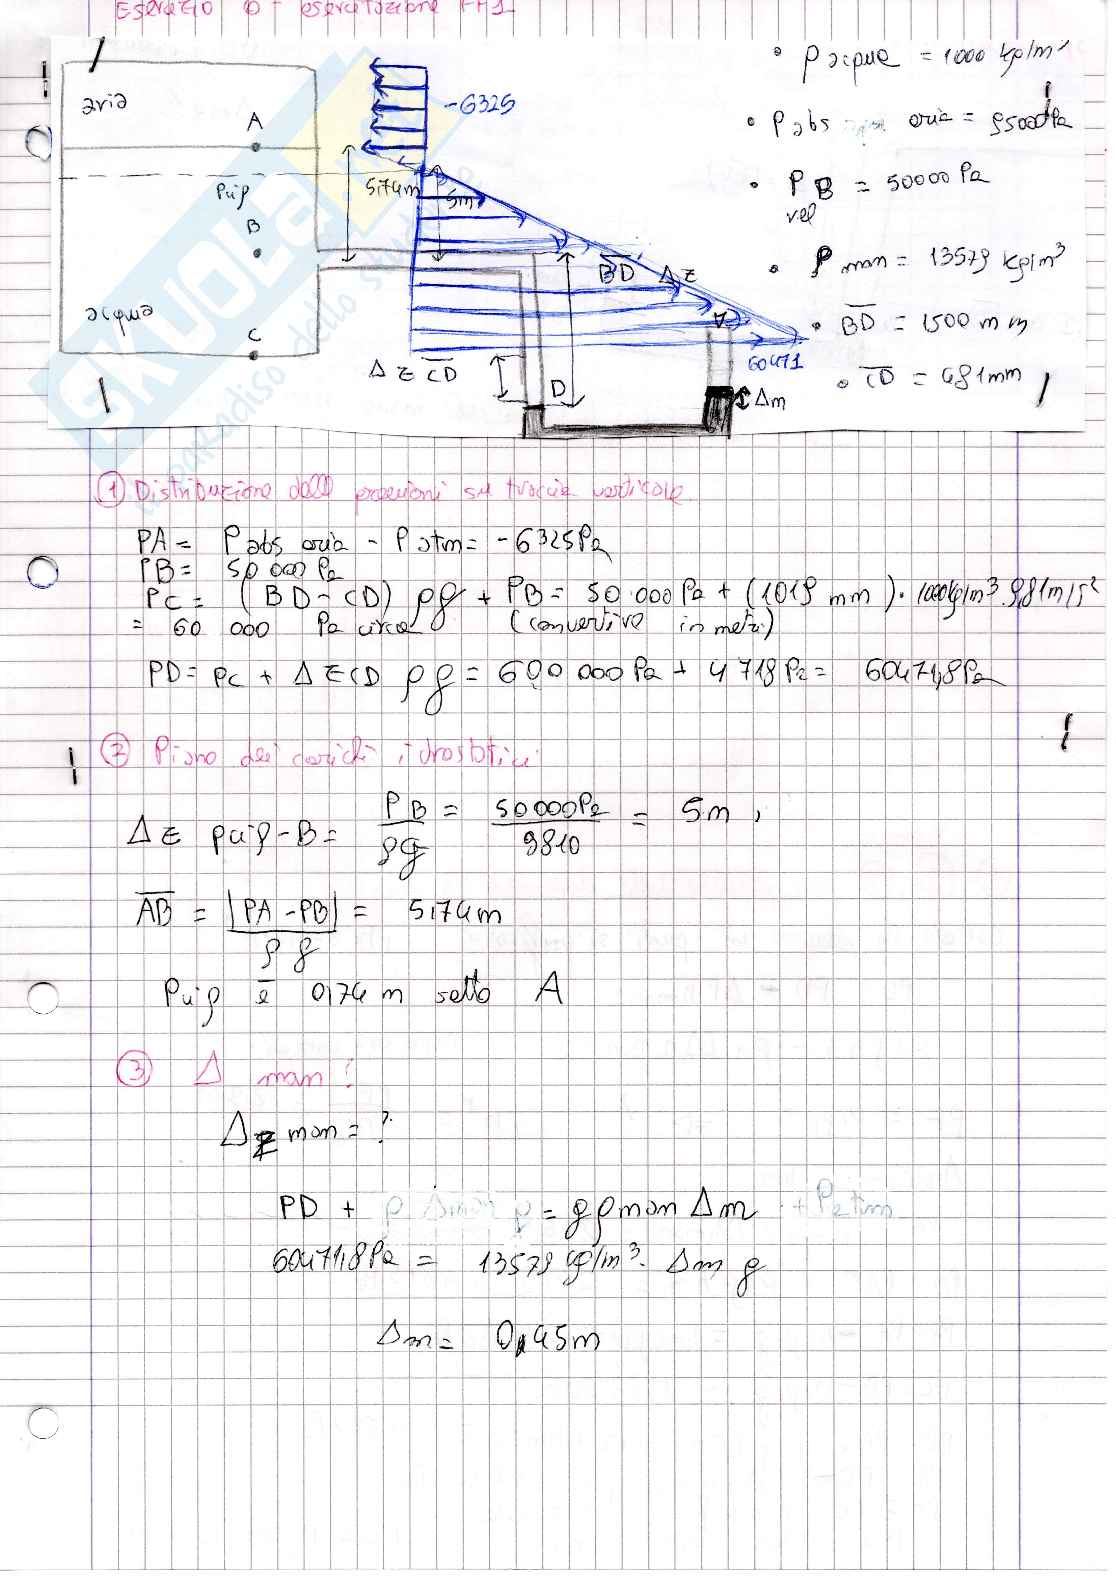 Esercizio 6 - esercitazione FH1
aria
A
Puip
B
acqua
C
-6325
5,74m
5m
BD
ΔZ
60471
ΔZ CD
D
Δm
• ρ acqua = 1000 kg/m³
• P abs aria = 95000Pa
• P B = 50000 Pa
rel
• ρ man = 13579 kg/m³
• BD = 1500 mm
• CD = 481mm
① Distribuzione delle pressioni su traccia verticale
PA = P abs aria - P atm = -6325Pa
PB = 50 000 Pa
PC = (BD - CD) ρg + PB = 50 000 Pa + (1019 mm) · 1000kg/m³ 9,81m/s²
= 60 000 Pa circa (convertire in metri)
PD = PC + ΔZCD ρg = 600 000 Pa + 4718Pa = 60471,8Pa
② Piano dei carichi idrostatici:
ΔZ puip-B = PB / ρg = 50 000Pa / 9810 = 5 m,
AB = |PA - PB| / ρg = 5,74m
Puip è 0,74 m sotto A
③ Δ man?
ΔZ man = ?
PD + ρ Δman g = gρman Δm + Patm
60471,8Pa = 13579 kg/m³ · Δm g
Δm = 0,45m